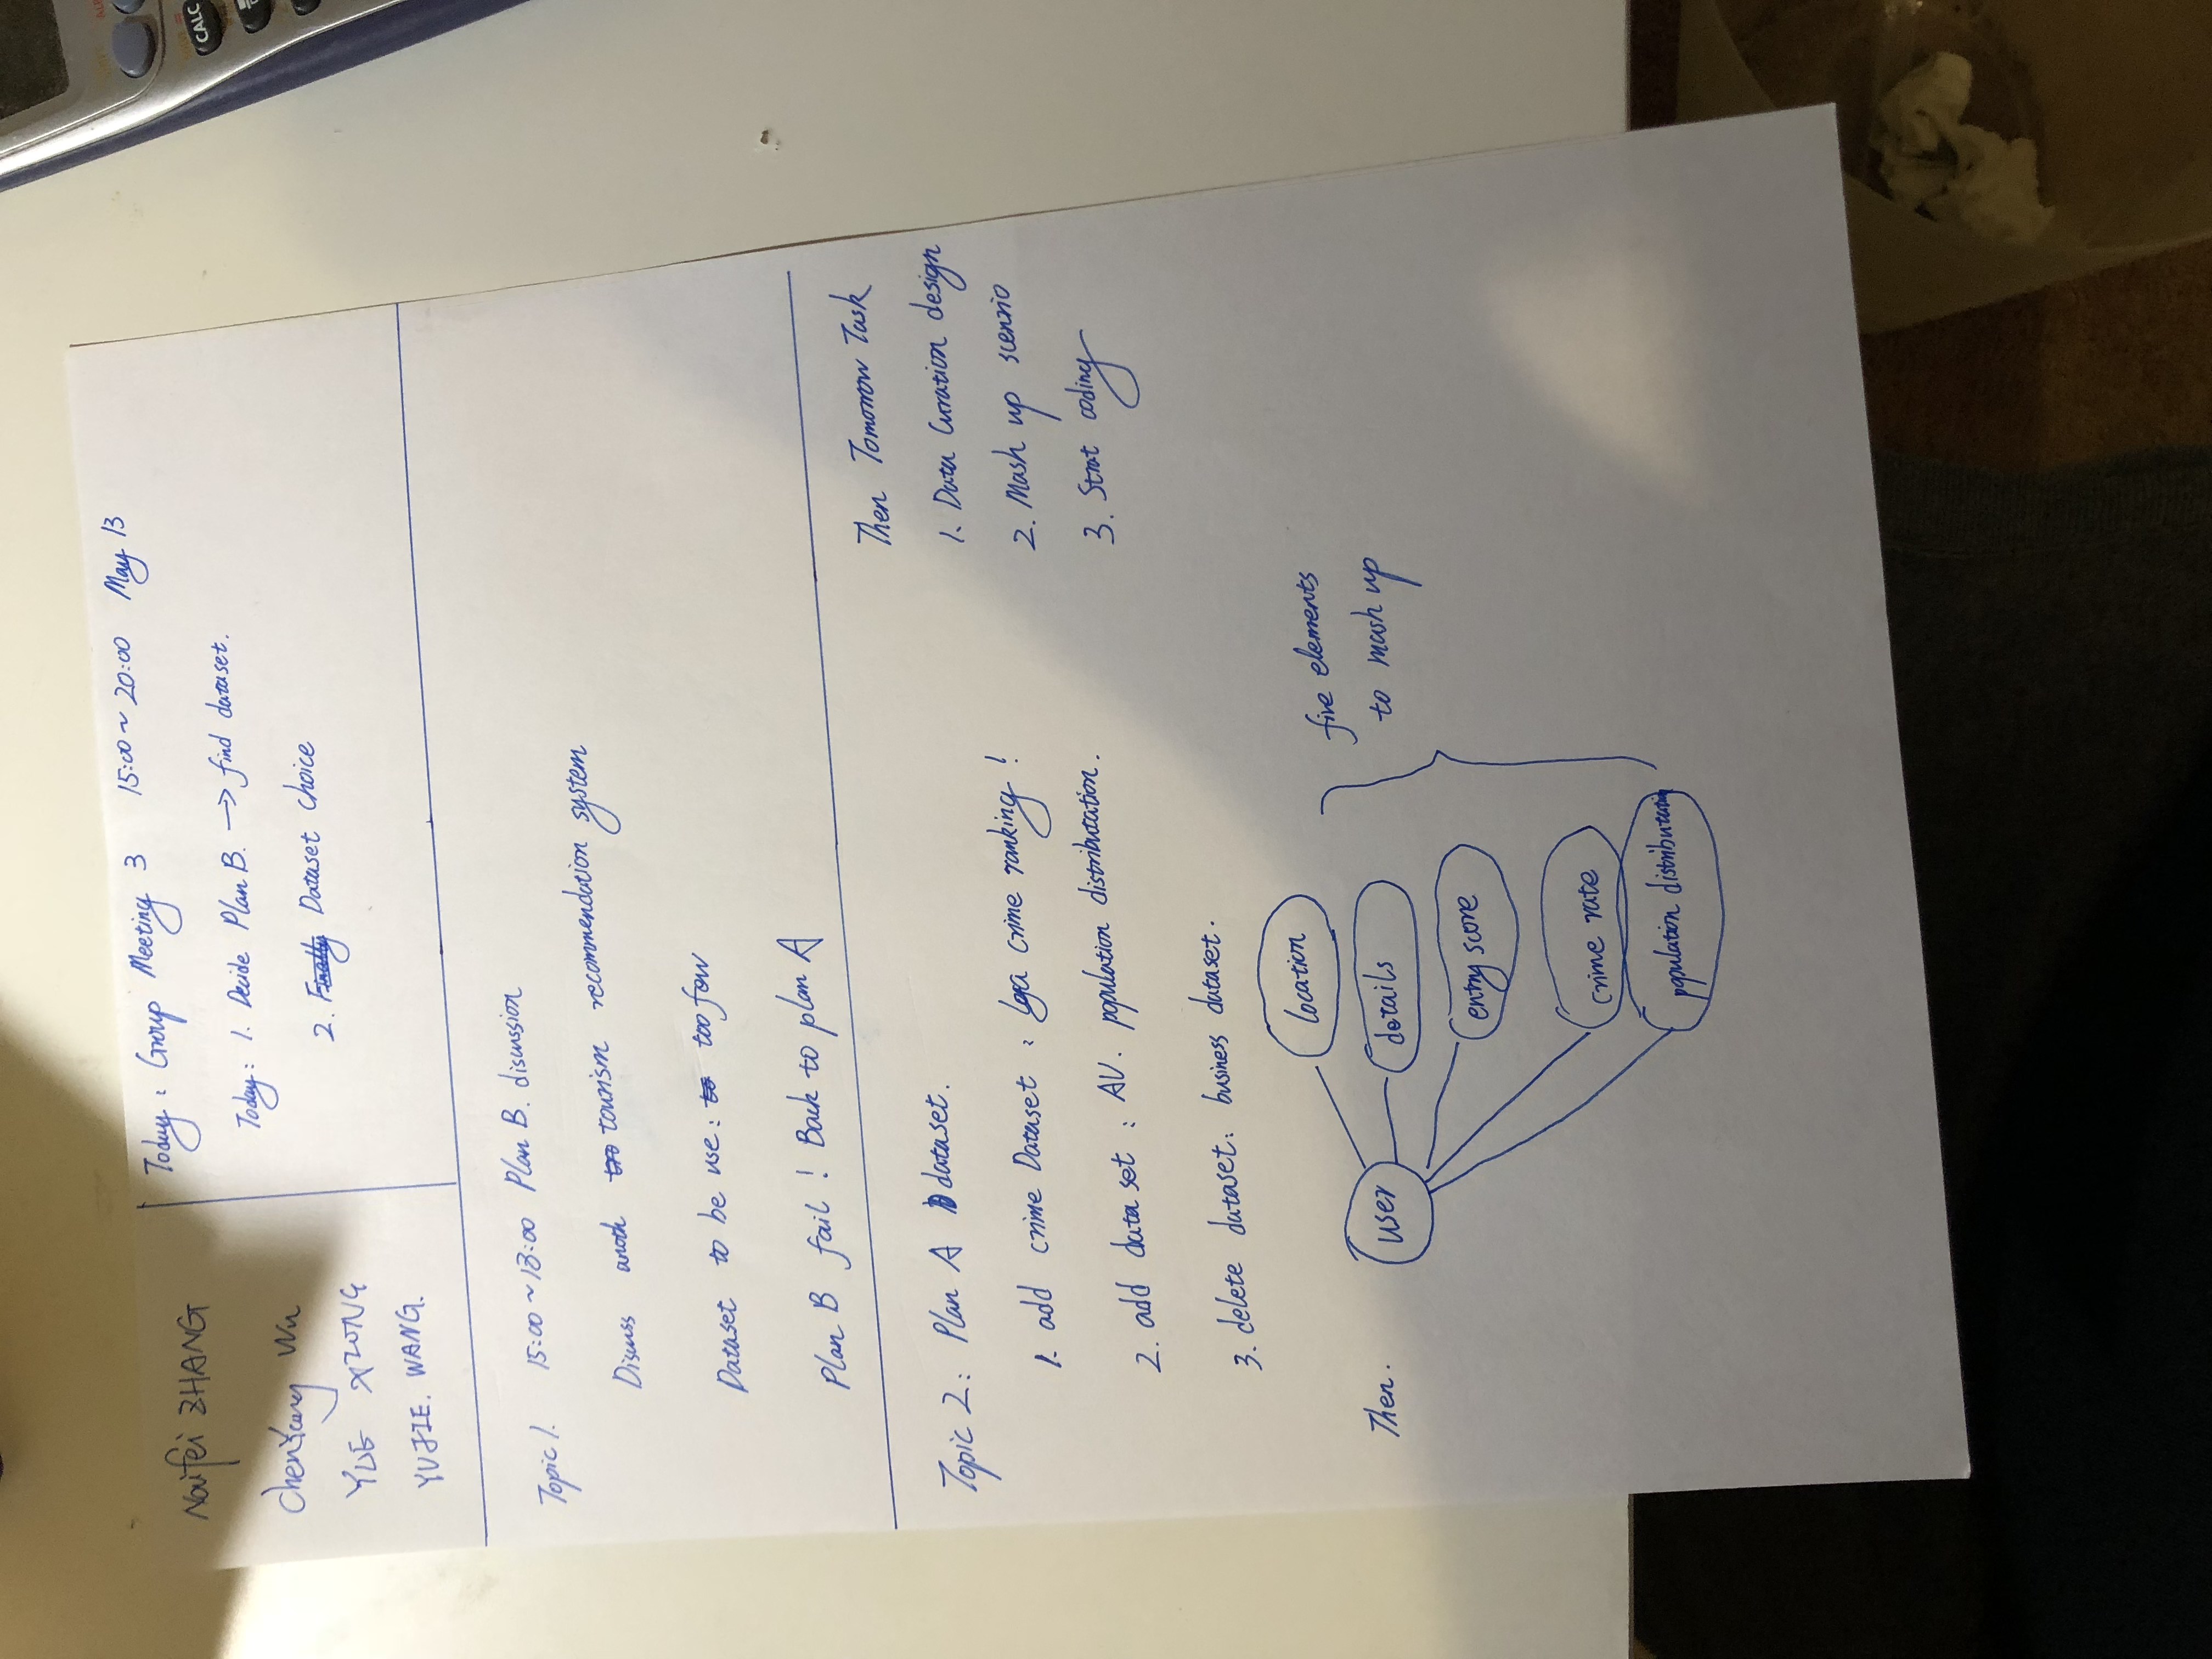 Naifei ZHANG
ChenYang Wu
YUE XIONG
YUJIE. WANG.
Today: Group Meeting 3 15:00 ~ 20:00 May 13
Today: 1. Decide Plan B. → find dataset.
2. Finally Dataset choice
Topic 1. 15:00 ~ 18:00 Plan B. discussion
Discuss anoth tro tourism recommendation system
Dataset to be use: to too few
Plan B fail! Back to plan A
Topic 2: Plan A dataset.
1. add crime Dataset: lga crime ranking!
2. add data set: AU. population distributation.
3. delete dataset: business dataset.
Then Tomorrow Task
1. Data Curation design
2. Mash up scenrio
3. Strat coding
Then.
user
location
details
entry score
crime rate
population distributation
five elements
to mash up
CALC